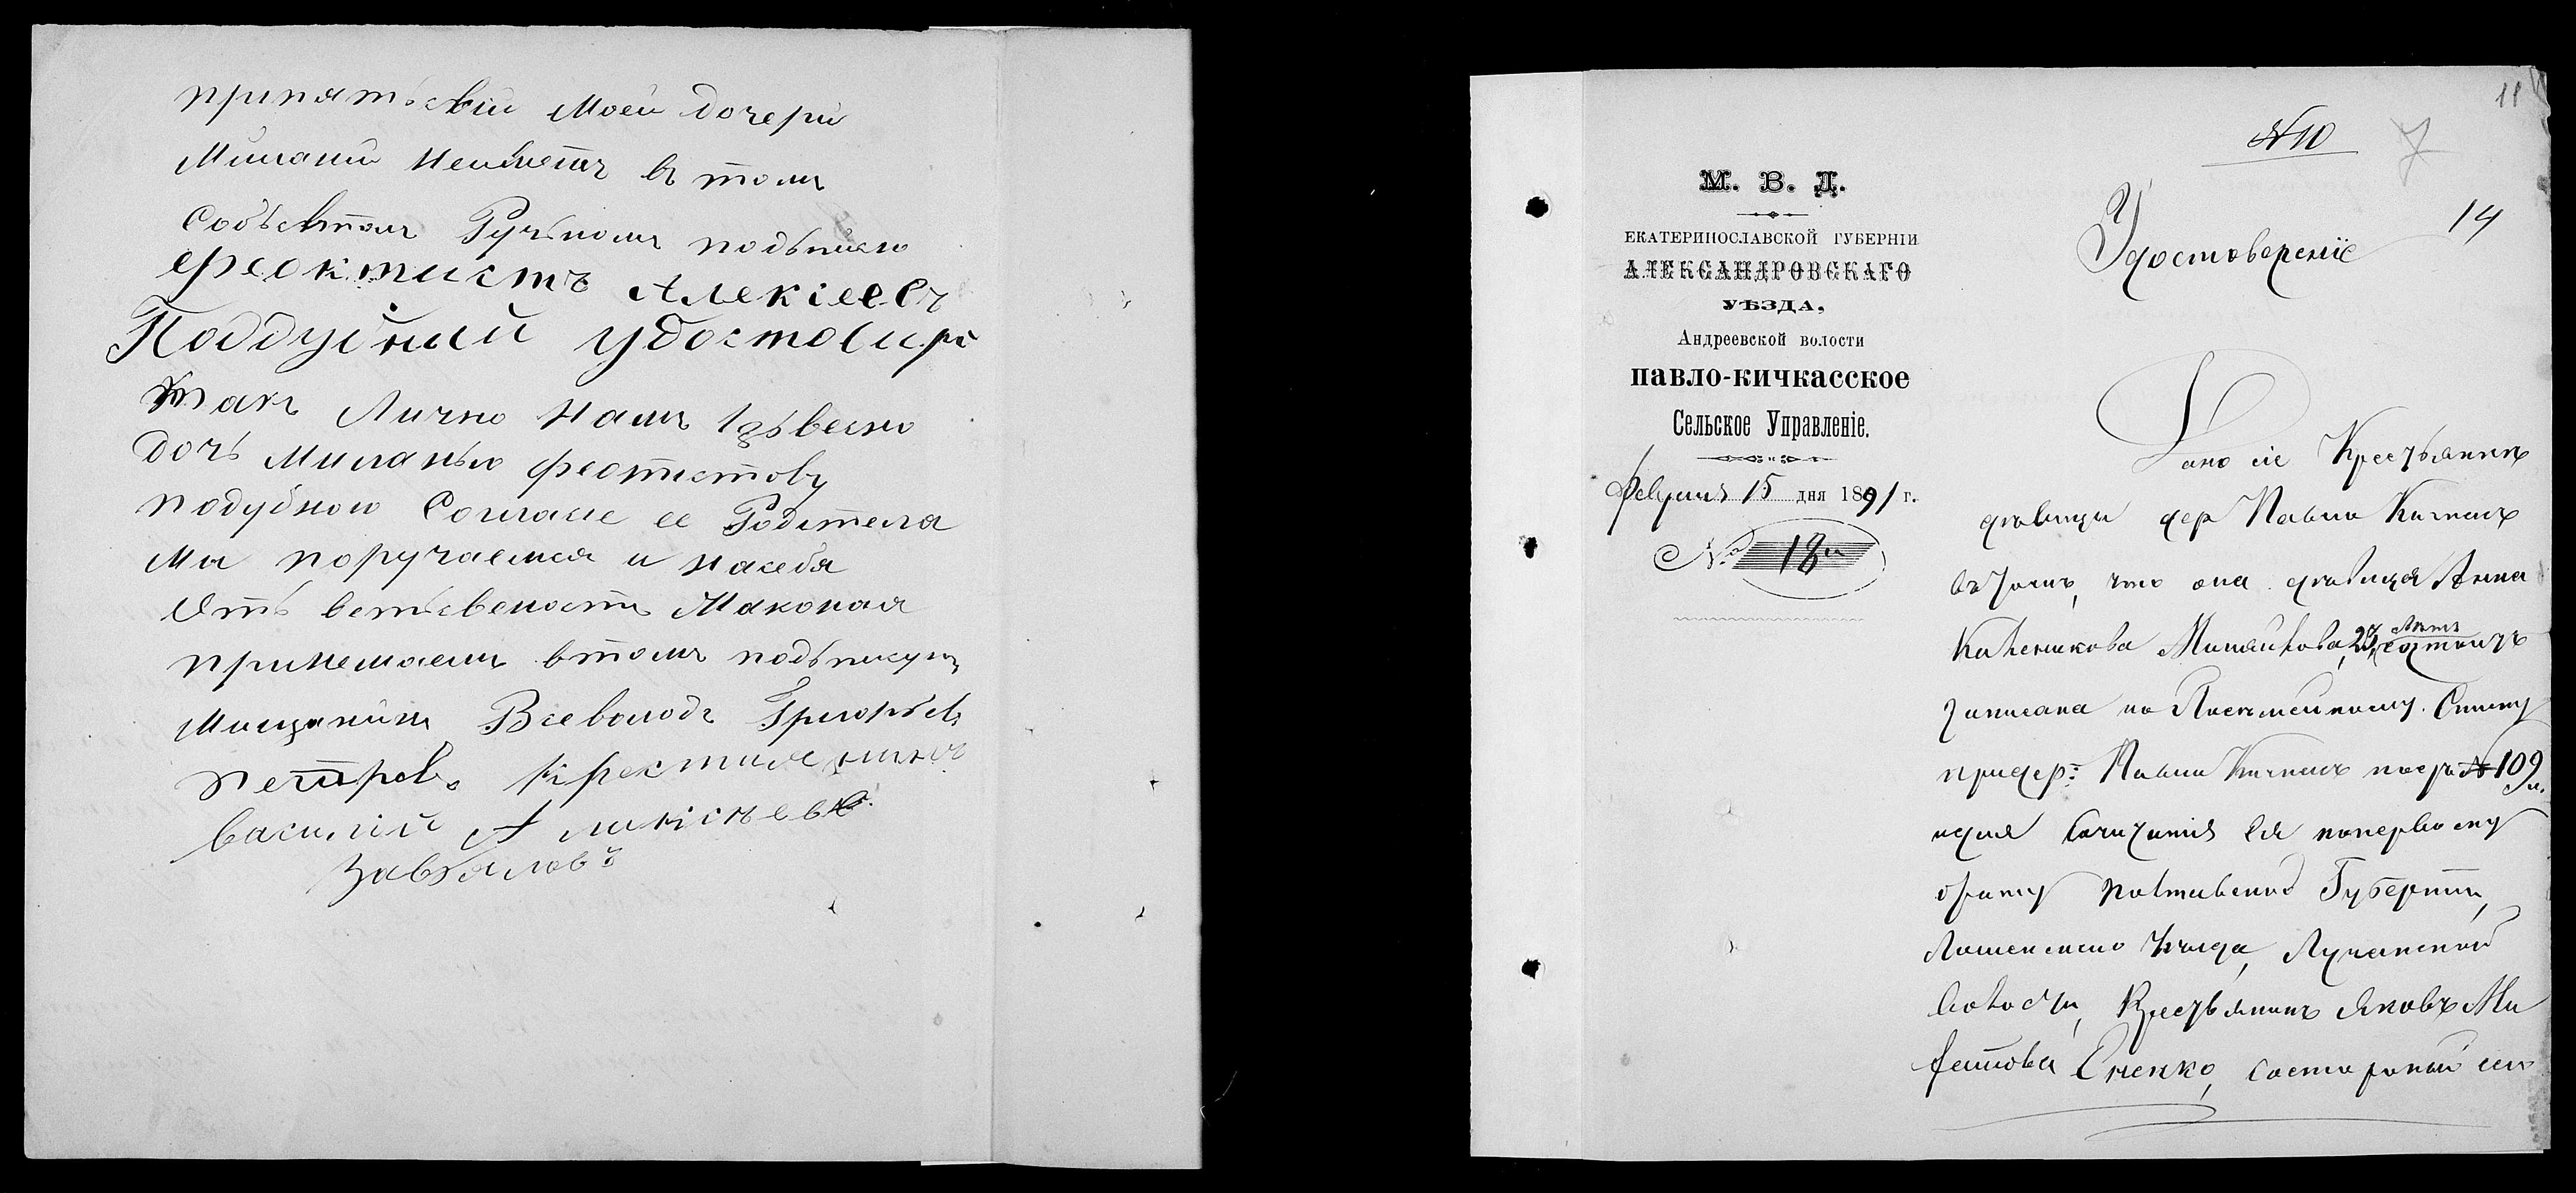 припятьсвіи Моей дочери
Милании неимеетъ въ томъ
Собъсвтномъ Ручъномъ подьписю
Феоктистъ Алексіеевъ
Поддубний удостовире
такъ Лично намъ Iзьвесно
дочъ Миланью феотистову
подубною Согласіе ее Родителя
мы поручаемся и насебя
Отъ ветьсвеность Маконая
принемаемъ втомъ подьписуемъ
Мищанинъ Всеволодъ Григорьев
петров. Крестиле нинъ
василий Аликсіевъ
Завьяловъ
11
№ 10
7
14
М. В. Д.
ЕКАТЕРИНОСЛАВСКОЙ ГУБЕРНІИ
АЛЕКСАНДРОВСКАГО
УѢЗДА,
Андреевской волости
ПАВЛО-КИЧКАССКОЕ
Сельское Управленіе.
Февраля 15 дня 1891 г.
№ 18
Удостоверенiе
Дано сіе Крестьянкѣ
дѣвицы дер Павло Кичкасъ
въ томъ, что она дѣвица Анна
Михайлова, 23 лѣтъ состоитъ
записана по Посемейному Списку
придер: Павло Кичкасъ подъ № 109
для бракосочитанія Ея поперьвому
браку Полтавской Губерніи,
уѣзда, Лучанской
волости, Крестьянинъ Яковъ Ми
Оненко, состороны сел